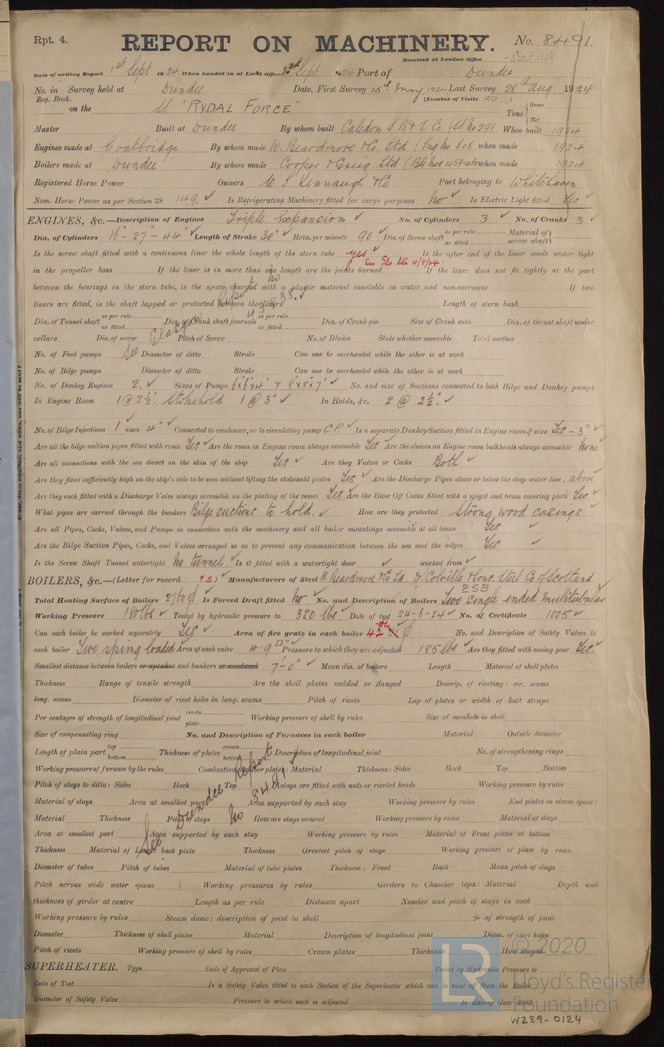 Rpt. 4. REPORT ON MACHINERY. No. 8491.
Received at London Office
Date of writing Report 1st Sept 1924 When handed in at Local Office 2nd Sept 1924 Port of Dundee
No. in Survey held at Dundee Date, First Survey 15th May 1924 Last Survey 28th Aug 1924
Reg. Book. (Number of Visits 30)
on the "RYDAL FORCE" Tons Gross Net
Master Built at Dundee By whom built Caledon S.B & E. Co When built 1924
Engines made at Coatbridge By whom made W. Beardmore & Co. Ltd (Eng No 606 when made 1924
Boilers made at Dundee By whom made Cooper & Greig Ltd when made 1924
Registered Horse Power Owners W. S. Kennaugh & Co Port belonging to Whitehaven
Nom. Horse Power as per Section 28 149. Is Refrigerating Machinery fitted for cargo purposes No Is Electric Light fitted Yes
ENGINES, &c.—Description of Engines Triple Expansion No. of Cylinders 3 No. of Cranks 3
Dia. of Cylinders 16"-27"-44" Length of Stroke 30" Revs. per minute 90 Dia. of Screw shaft as per rule as fitted Material of screw shaft
Is the screw shaft fitted with a continuous liner the whole length of the stern tube yes Is the after end of the liner made water tight
in the propeller boss If the liner is in more than one length are the joints burned If the liner does not fit tightly at the part
between the bearings in the stern tube, is the space charged with a plastic material insoluble in water and non-corrosive If two
liners are fitted, is the shaft lapped or protected between the liners Length of stern bush
Dia. of Tunnel shaft as per rule as fitted Dia. of Crank shaft journals as per rule as fitted Dia. of Crank pin Size of Crank webs Dia. of thrust shaft under
collars Dia. of screw Pitch of Screw No. of Blades State whether moveable Total surface
No. of Feed pumps Diameter of ditto Stroke Can one be overhauled while the other is at work
No. of Bilge pumps Diameter of ditto Stroke Can one be overhauled while the other is at work
See Glasgow Report No
No. of Donkey Engines 2. Sizes of Pumps 6"x6"x4" & 8"x8"x7" No. and size of Suctions connected to both Bilge and Donkey pumps
In Engine Room 1 @ 2½" Stokehold 1 @ 3" In Holds, &c. 2 @ 2½"
No. of Bilge Injections 1 sizes 4" Connected to condenser, or to circulating pump C.P. Is a separate Donkey Suction fitted in Engine room & size Yes - 3"
Are all the bilge suction pipes fitted with roses Yes Are the roses in Engine room always accessible Yes Are the sluices on Engine room bulkheads always accessible None
Are all connections with the sea direct on the skin of the ship Yes Are they Valves or Cocks Both
Are they fixed sufficiently high on the ship's side to be seen without lifting the stokehold plates Yes Are the Discharge Pipes above or below the deep water line above
Are they each fitted with a Discharge Valve always accessible on the plating of the vessel Yes Are the Blow Off Cocks fitted with a spigot and brass covering plate Yes
What pipes are carried through the bunkers Bilge suctions to hold. How are they protected Strong wood casings
Are all Pipes, Cocks, Valves, and Pumps in connection with the machinery and all boiler mountings accessible at all times Yes
Are the Bilge Suction Pipes, Cocks, and Valves arranged so as to prevent any communication between the sea and the bilges Yes
Is the Screw Shaft Tunnel watertight No tunnel Is it fitted with a watertight door worked from
BOILERS, &c.—(Letter for record (S)) Manufacturers of Steel W. Beardmore & Co Ld. D. Colville & Sons. Steel Co of Scotland
Total Heating Surface of Boilers 2760 Is Forced Draft fitted No No. and Description of Boilers Two Single ended multitubular 2SB
Working Pressure 180 lbs Tested by hydraulic pressure to 320 lbs Date of test 24-6-24 No. of Certificate 1005
Can each boiler be worked separately Yes Area of fire grate in each boiler 42 No. and Description of Safety Valves to
each boiler Two spring loaded Area of each valve Pressure to which they are adjusted 185 lbs Are they fitted with easing gear Yes.
Smallest distance between boilers or uptakes and bunkers or woodwork 7'-0" Mean dia. of boilers Length Material of shell plates
Thickness Range of tensile strength Are the shell plates welded or flanged Descrip. of riveting: cir. seams
long. seams Diameter of rivet holes in long. seams Pitch of rivets Lap of plates or width of butt straps
Per centages of strength of longitudinal joint rivets plate Working pressure of shell by rules Size of manhole in shell
Size of compensating ring No. and Description of Furnaces in each boiler Material Outside diameter
Length of plain part top bottom Thickness of plates crown bottom Description of longitudinal joint No. of strengthening rings
Working pressure of furnace by the rules Combustion chamber plates: Material Thickness: Sides Back Top Bottom
Pitch of stays to ditto: Sides Back Top If stays are fitted with nuts or riveted heads Working pressure by rules
Material of stays Area at smallest part Area supported by each stay Working pressure by rules End plates in steam space:
Material Thickness Pitch of stays How are stays secured Working pressure by rules Material of stays
Area at smallest part Area supported by each stay Working pressure by rules Material of Front plates at bottom
Thickness Material of Lower back plate Thickness Greatest pitch of stays Working pressure of plate by rules
See Dundee Report No 8499.
Diameter of tubes Pitch of tubes Material of tube plates Thickness: Front Back Mean pitch of stays
Pitch across wide water spaces Working pressures by rules Girders to Chamber tops: Material Depth and
thickness of girder at centre Length as per rule Distance apart Number and pitch of stays in each
Working pressure by rules Steam dome: description of joint to shell % of strength of joint
Diameter Thickness of shell plates Material Description of longitudinal joint Diam. of rivet holes
Pitch of rivets Working pressure of shell by rules Crown plates Thickness How stayed
SUPERHEATER. Type Date of Approval of Plan Tested by Hydraulic Pressure to
Date of Test Is a Safety Valve fitted to each Section of the Superheater which can be shut off from the Boiler
Diameter of Safety Valve Pressure to which each is adjusted Is Easing Gear fitted
© 2020
LR Lloyd's Register
Foundation
W289-0124